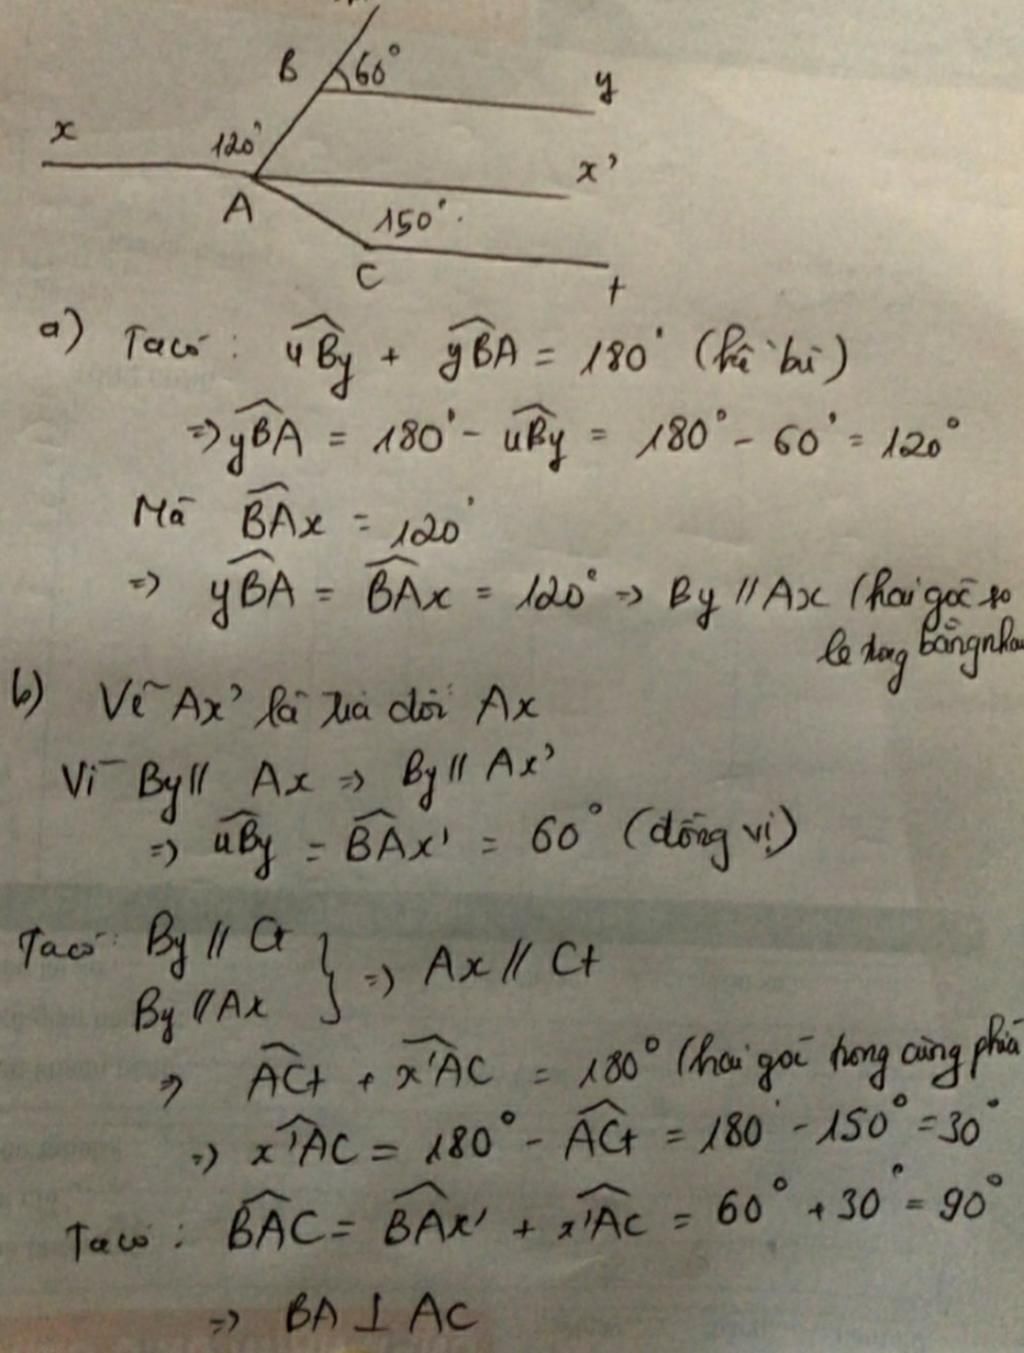 B 60°
y
x
120°
x'
A
150°
C
t
a) Ta có: uBy + yBA = 180° (kề bù)
=> yBA = 180° - uBy = 180° - 60° = 120°
Mà BAx = 120°
=> yBA = BAx = 120° => By // Ax (hai góc so
le trong bằng nhau
b) Vẽ Ax' là tia đối Ax
Vì By // Ax => By // Ax'
=> uBy = BAx' = 60° (đồng vị)
Ta có: By // Ct
By // Ax
} => Ax // Ct
=> ACt + x'AC = 180° (hai góc trong cùng phía
=> x'AC = 180° - ACt = 180° - 150° = 30°
Ta có: BAC = BAx' + x'AC = 60° + 30° = 90°
=> BA ⊥ AC